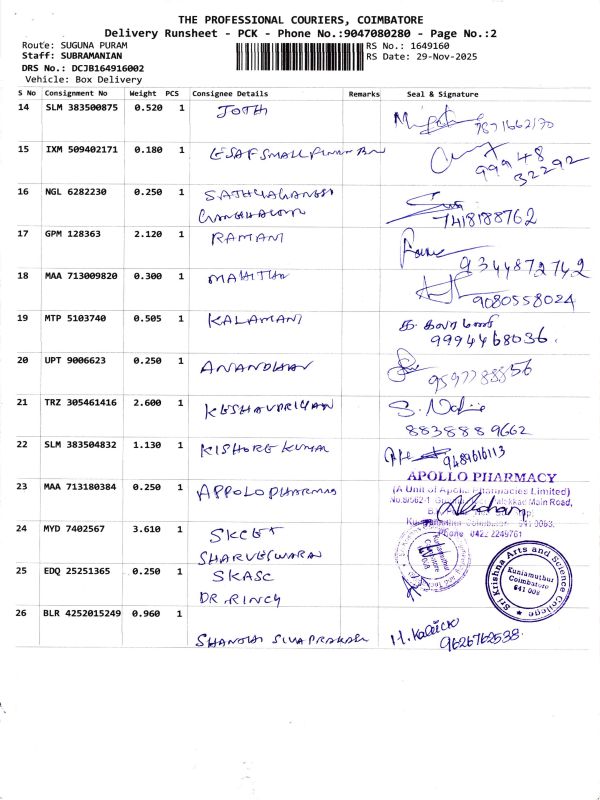 THE PROFESSIONAL COURIERS, COIMBATORE
Delivery Runsheet - PCK - Phone No.:9047080280 - Page No.:2
Route: SUGUNA PURAM RS No.: 1649160
Staff: SUBRAMANIAN RS Date: 29-Nov-2025
DRS No.: DCJB164916002
Vehicle: Box Delivery
S No Consignment No Weight PCS Consignee Details Remarks Seal & Signature
14 SLM 383500875 0.520 1 JOTHI
7871662170
15 IXM 509402171 0.180 1 ESAF SMALL FINAN BN
99948
32292
16 NGL 6282230 0.250 1 SATHYAGANGA
7418188762
17 GPM 128363 2.120 1 RAMANI
9344872742
18 MAA 713009820 0.300 1 MAHITHA
9080558024
19 MTP 5103740 0.505 1 KALAMANI
த. கலாமணி
9994468036.
20 UPT 9006623 0.250 1 ANANDHAN
9597788856
21 TRZ 305461416 2.600 1 KESHAVPRIYAN
8838889662
22 SLM 383504832 1.130 1 KISHORE KUMAR
9489616113
23 MAA 713180384 0.250 1 APPOLO PHARMAS
APOLLO PHARMACY
(A Unit of Apollo Pharmacies Limited)
Palakkad Main Road,
Phone 0422 2249761
24 MYD 7402567 3.610 1 SKCET
SHARVESWARAN
25 EDQ 25251365 0.250 1 SKASC
DR. RINCY
Sri Krishna Arts and Science College
Kuniamuthur
Coimbatore
641 008
26 BLR 4252015249 0.960 1
SHANTHI SIVA PRAKASH
9626762538